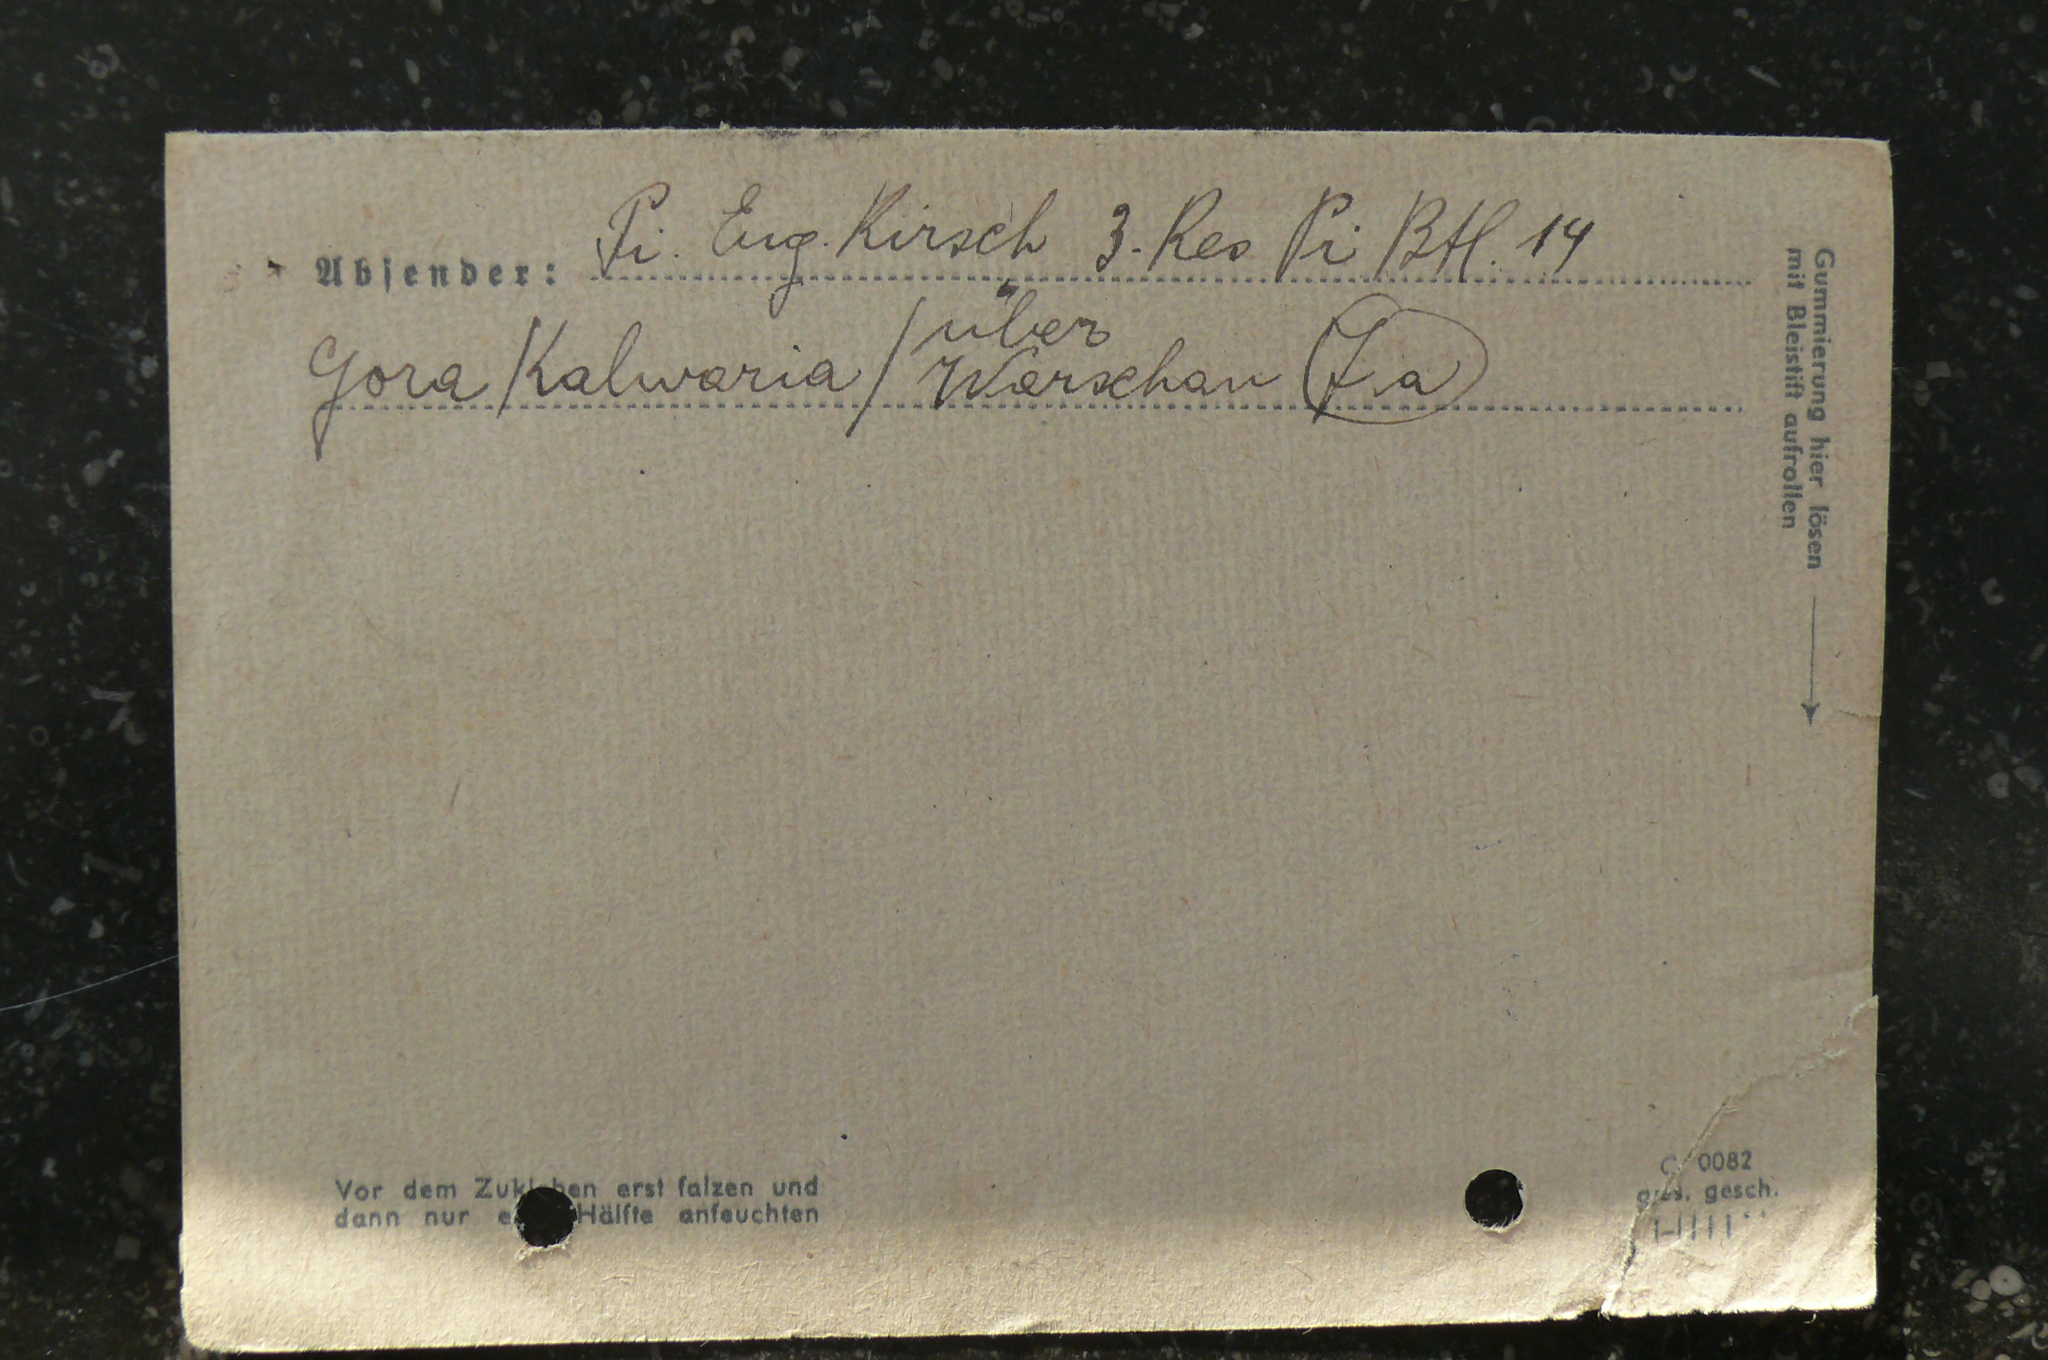 Absender: Pi. Eug. Kirsch 3. Res Pi Btl. 14
Gora / Kalwaria / über Warschau
Gummierung hier lösen
mit Bleistift aufrollen
Vor dem Zukleben erst falzen und
dann nur Hälfte anfeuchten
C 0082
ges. gesch.